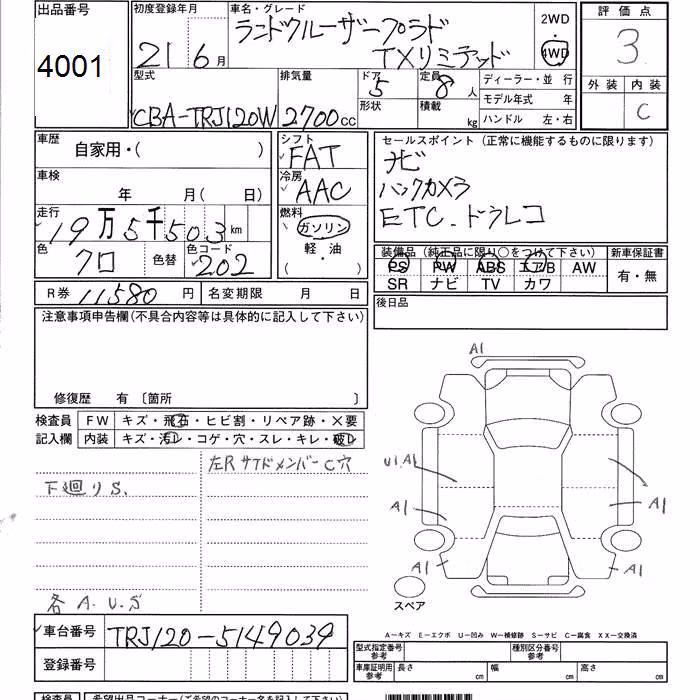 出品番号
4001
初度登録年月
21 6月
車名・グレード
ランドクルーザープラド
TXリミテッド
2WD
4WD
評価点
3
外装 内装
C
型式
CBA-TRJ120W
排気量
2700cc
ドア
5
形状
定員
8人
積載
kg
ディーラー・並 行
モデル年式 年
ハンドル 左・右
車歴
自家用・( )
車検
年 月( 日)
走行
19万5千503km
色
クロ
色替
色コード
202
シフト
FAT
冷房
AAC
燃料
ガソリン
軽・油
( )
セールスポイント(正常に機能するものに限ります)
ナビ
バックカメラ
ETC. ドラレコ
装備品(純正品に限り○をつけて下さい)
PS PW ABS エアB AW
SR ナビ TV カワ
新車保証書
有・無
R券 11580円
名変期限 月 日
後日品
注意事項申告欄(不具合内容等は具体的に記入して下さい)
修復歴 有〔箇所 〕
検査員
記入欄
FW キズ・飛石・ヒビ割・リペア跡・×要
内装 キズ・汚レ・コゲ・穴・スレ・キレ・破レ
左Rサイドメンバー C穴
下廻りS.
各 A.U.S
A1
U1.A1
A1
A1
A1
A1
スペア
車台番号 TRJ120-5149039
登録番号
A－キズ E－エクボ U－凹み W－補修跡 S－サビ C－腐食 XX－交換済
型式指定番号
参考
種別区分番号
参考
車庫証明用
参考
長さ cm
幅 cm
高さ cm
検査員
希望出品コーナー(ご希望のコーナー名を記入下さい)